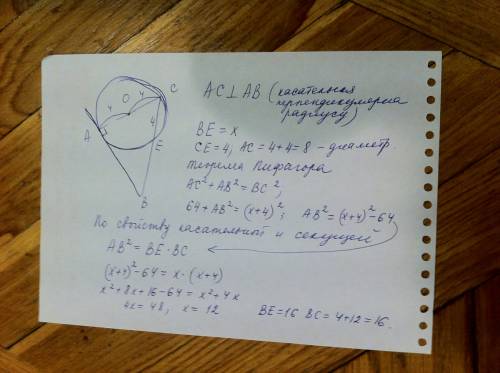 C
4
O
4
4
A
E
B
AC ⊥ AB (касательная
перпендикулярна
радиусу)
BE = x
CE = 4; AC = 4+4 = 8 - диаметр.
теорема Пифагора
AC² + AB² = BC²;
64 + AB² = (x+4)²; AB² = (x+4)² - 64
По свойству касательной и секущей
AB² = BE · BC
(x+4)² - 64 = x · (x+4)
x² + 8x + 16 - 64 = x² + 4x
4x = 48; x = 12
BE = 16 BC = 4+12 = 16.